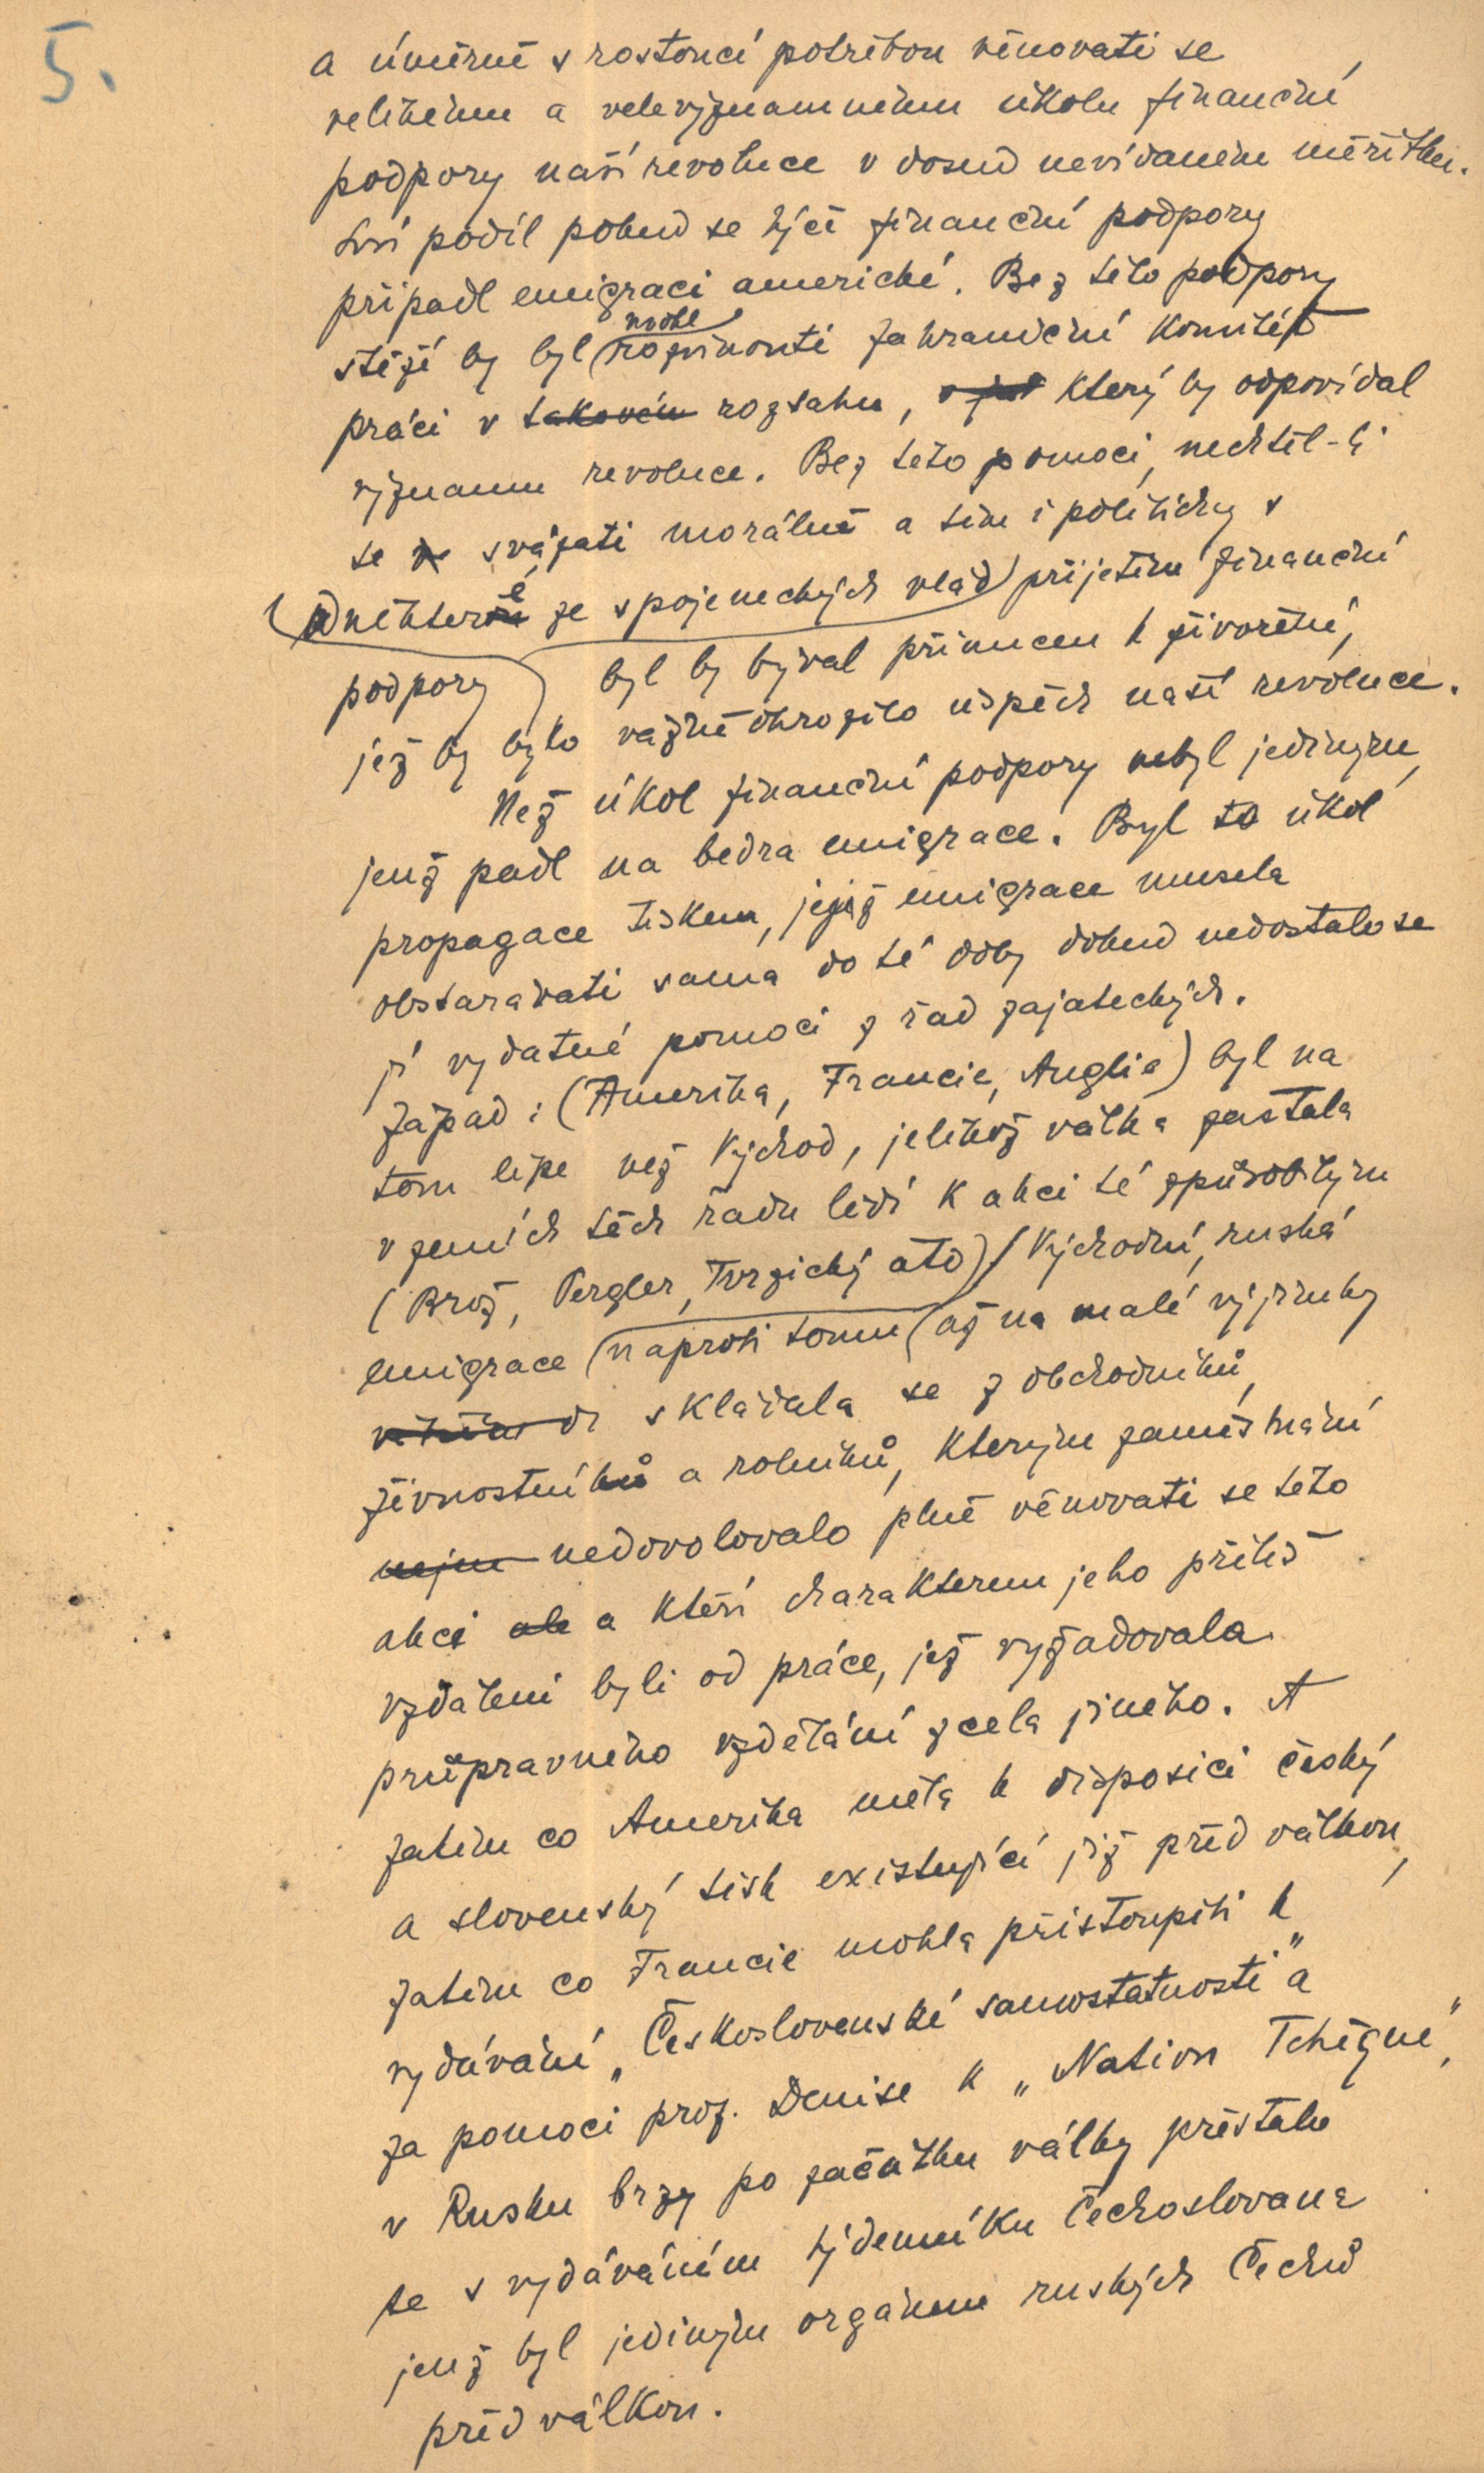 5.
a úměrně s rostoucí potřebou věnovati se
velikému a velevýznamnému úkolu finanční
podpory naší revoluce v dosud nevídaném měřítku.
podíl pokud se týče finanční podpory
připadl emigraci americké. Bez této podpory
mohl
stěží by byl rozvinouti zahraniční komitét
práci v takovém rozsahu, který by odpovídal
významu revoluce. Bez této pomoci, nechtěl-li
se svázati morálně a tím i politicky s
některé ze spojeneckých vlád přijetím finanční
podpory byl by býval přinucen k živoření,
jež by bylo vážně ohrozilo úspěch naší revoluce.
Než úkol finanční podpory nebyl jediným,
jenž padl na bedra emigrace. Byl to úkol
propagace tiskem, jejíž emigrace musela
obstarávati sama do té doby dokud nedostalo se
jí vydatné pomoci z řad zajateckých.
Západ: (Amerika, Francie, Anglie) byl na
tom lépe než Východ, jelikož válka zastala
v zemích těch řadu lidí k akci té způsobilým
(Brož, Pergler, Tvrzický atd) Východní, ruská
emigrace naproti tomu až na malé výjimky
skládala se z obchodníků,
živnostníků a rolníků, kterým zaměstnání
nejen nedovolovalo plně věnovati se této
akci ale a kteří charakterem jeho příliš
vzdáleni byli od práce, jež vyžadovala
průpravného vzdělání zcela jiného. A
zatím co Amerika měla k disposici český
a slovenský tisk existující již před válkou,
zatím co Francie mohla přistoupiti k
vydávání „Československé samostatnosti" a
za pomoci prof. Denise k „Nation Tchèque",
v Rusku brzy po začátku války přestalo
se s vydáváním týdenníku Čechoslovana
jenž byl jediným orgánem ruských Čechů
před válkou.